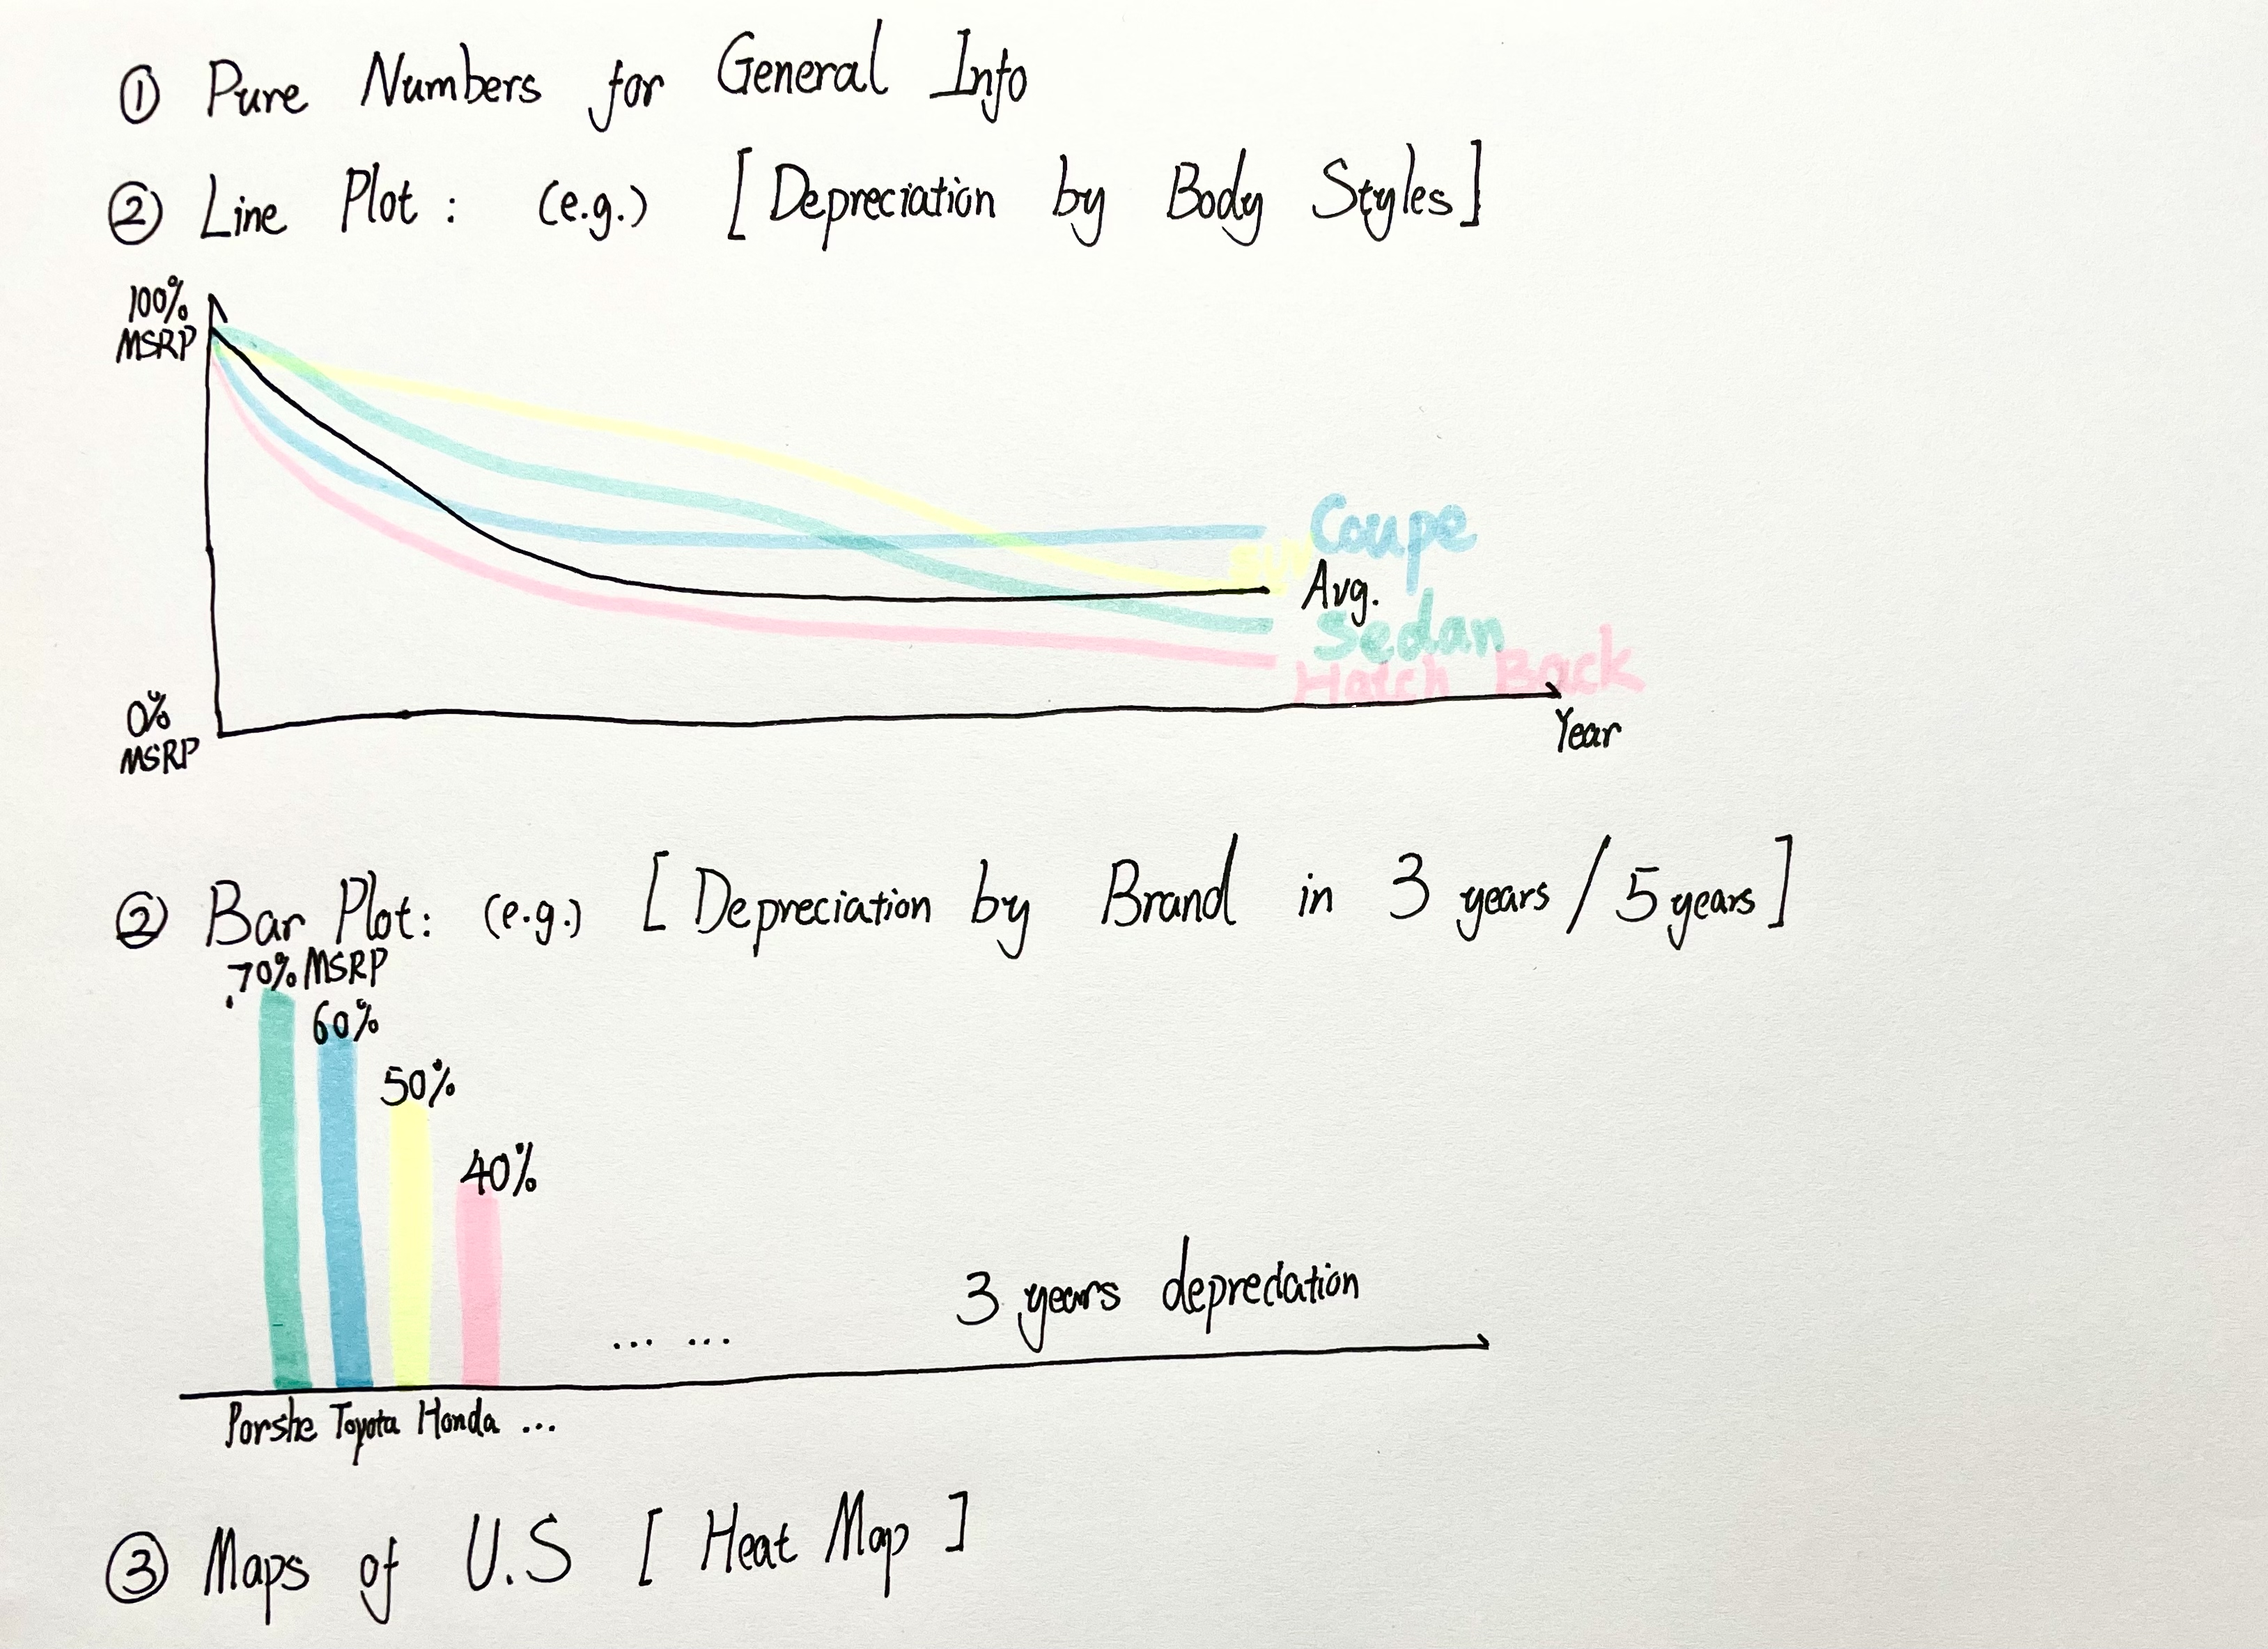 ① Pure Numbers for General Info
② Line Plot: (e.g.) [Depreciation by Body Styles]
100%
MSRP
Coupe
SUV
Avg.
Sedan
Hatch Back
0%
MSRP
Year
② Bar Plot: (e.g.) [Depreciation by Brand in 3 years / 5 years]
70% MSRP
60%
50%
40%
3 years depreciation
... ...
Porshe Toyota Honda ...
③ Maps of U.S [Heat Map]